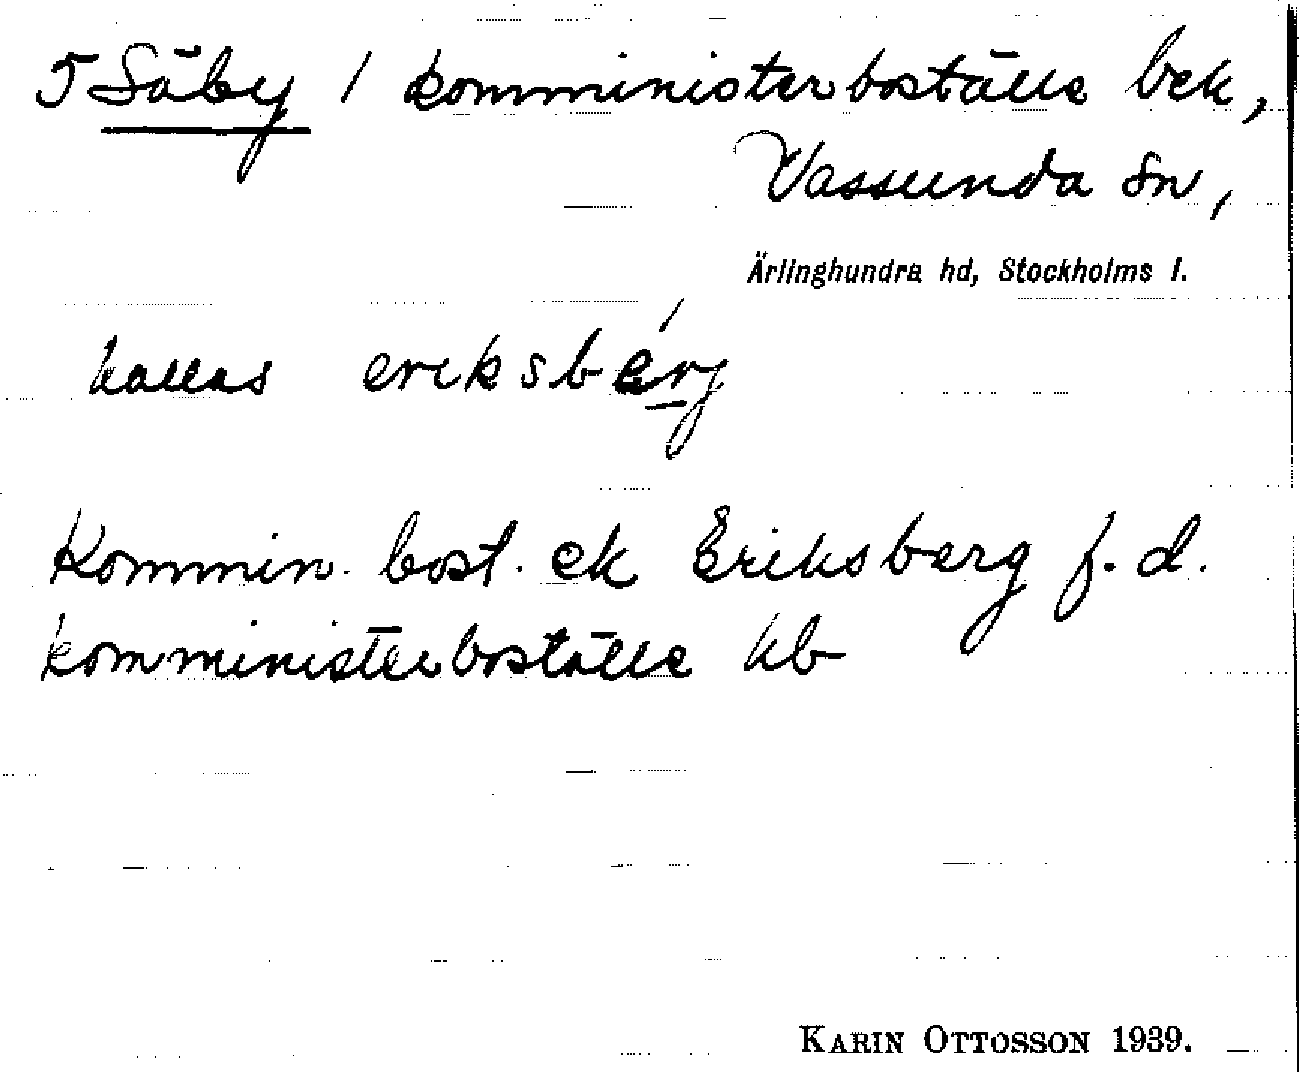 5 Säby 1 komministerboställe bek,
Vassunda sn,
Ärlinghundra hd, Stockholms l.
kallas eriksbérg
Kommin. bost. ek Eriksberg f. d.
komministerboställe kb
KARIN OTTOSSON 1939.